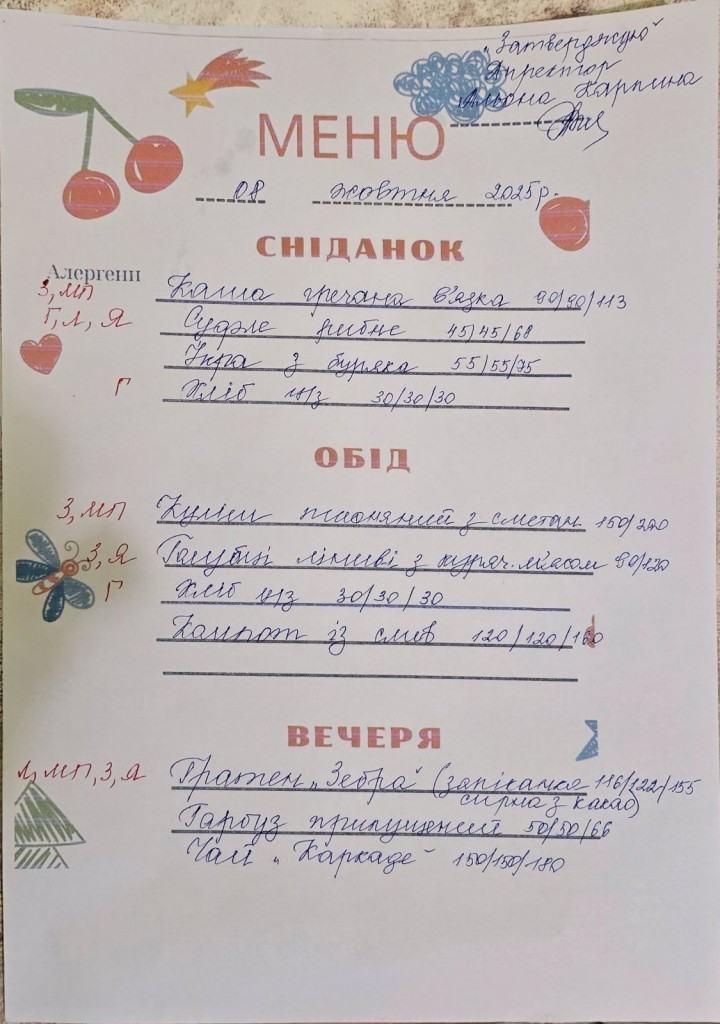 „Затверджую"
Директор
Альона Карпина
МЕНЮ
08 жовтня 2025р.
СНІДАНОК
Алергени
З, мп Каша гречана в'язка 90/90/113
Г, л, Я Суфле рибне 45/45/68
Ікра з буряка 55/55/75
Г Хліб ц/з 30/30/30
ОБІД
З, мп Куліш пшоняний з сметан. 150/220
З, Я Голубці ліниві з куряч. м'ясом 90/120
Г Хліб ц/з 30/30/30
Компот із слив 120/120/160
ВЕЧЕРЯ
Л, мп, З, Я Гратен „Зебра" (запіканка 116/122/155
сирна з какао)
Гарбуз припущений 50/50/66
Чай „Каркаде" 150/150/180